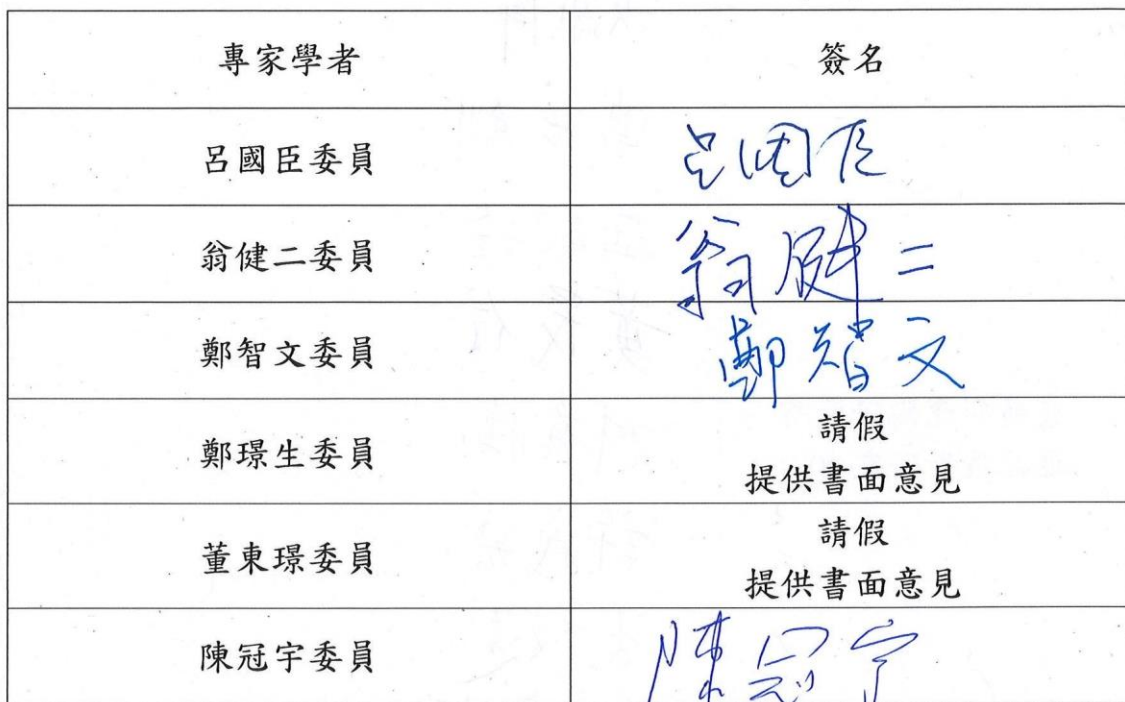 專家學者 簽名
呂國臣委員 呂國臣
翁健二委員 翁健二
鄭智文委員 鄭智文
鄭璟生委員 請假
提供書面意見
董東璟委員 請假
提供書面意見
陳冠宇委員 陳冠宇